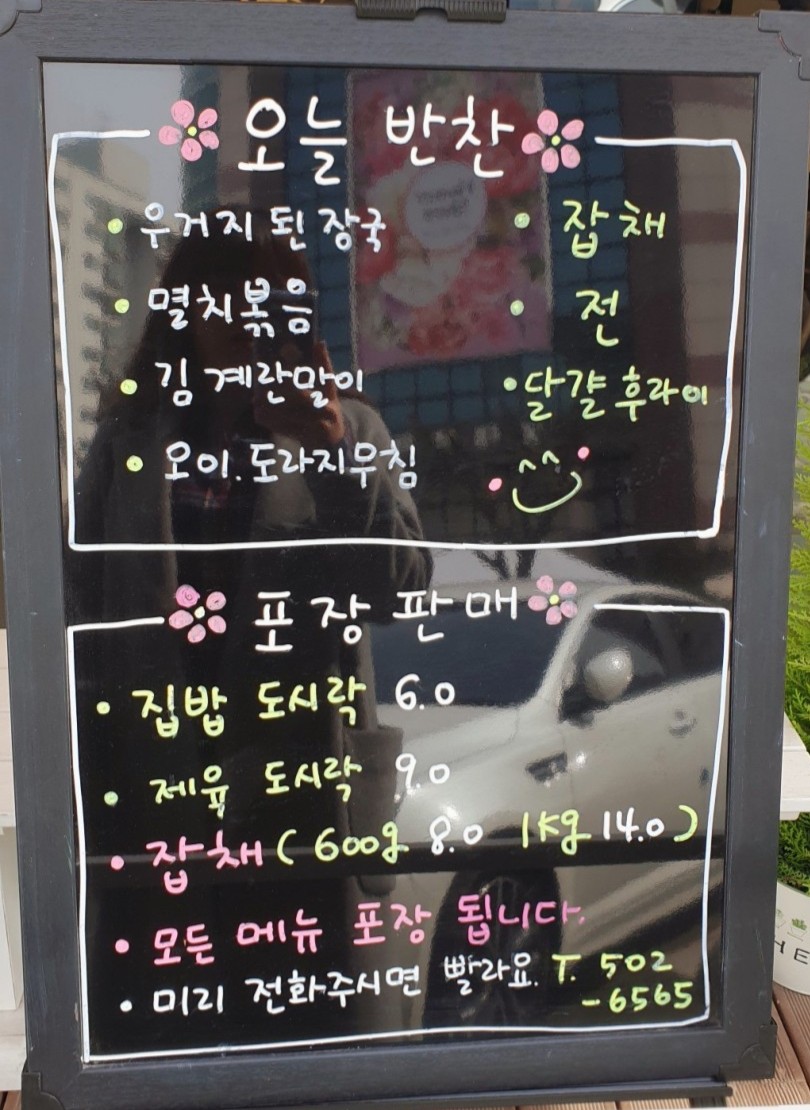 오늘 반찬
우거지 된장국
멸치볶음
김 계란말이
오이.도라지무침
잡채
전
달걀후라이
포장 판매
집밥 도시락 6.0
제육 도시락 9.0
잡채 (600g 8.0 1kg 14.0)
모든 메뉴 포장 됩니다.
미리 전화주시면 빨라요. T. 502
-6565
HE